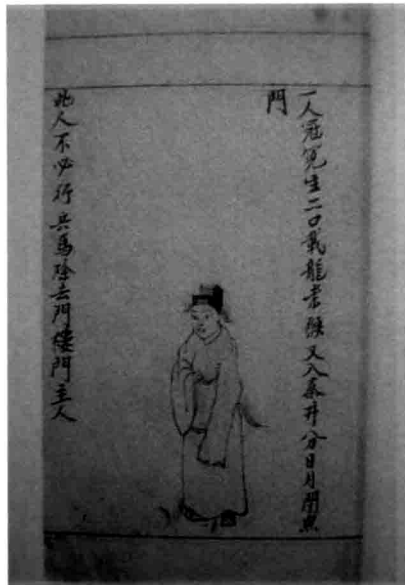 一人冠冕生二口戴龍
又入秦井分日月開無
門
此人不必行兵馬除去門樓門主人